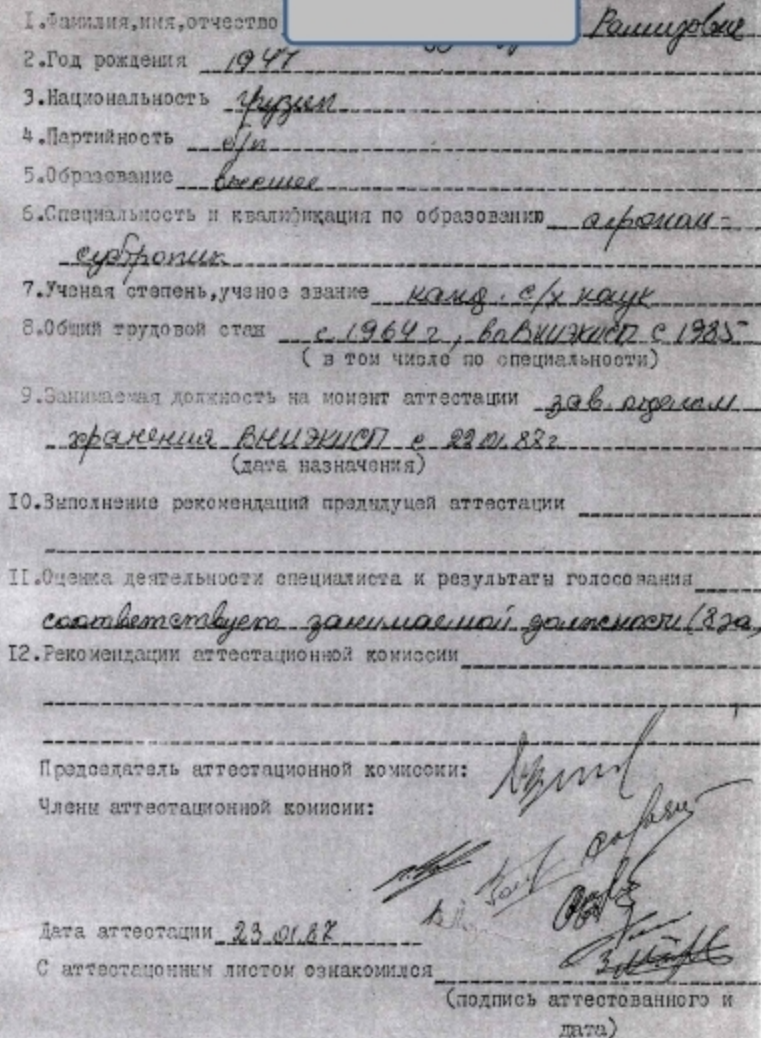 I.Фамилия,имя,отчество
2.Год рождения 1947
3.Национальность грузин
4.Партийность б/п
5.Образование высшее
6.Специальность и квалификация по образованию агроном-
субтропик
7.Ученая степень,ученое звание канд. с/х наук
8.Общий трудовой стаж с 1964 г, во ВНИЭКИСП с 1985
( в том число по специальности)
9.Занимаемая должность на момент аттестации зав. отделом
хранения ВНИЭКИСП с 22.01.87г
(дата назначения)
IO.Выполнение рекомендаций предыдущей аттестации
II.Оценка деятельности специалиста и результаты голосования
соответствует занимаемой должности (8 за,
I2.Рекомендации аттестационной комиссии
Председатель аттестационной комиссии:
Члены аттестационной комисии:
Дата аттестации 23.01.87
С аттестационным листом ознакомился
(подпись аттестованного и
дата)